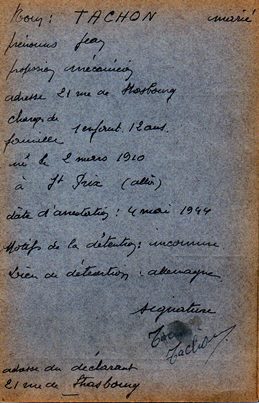 Nom: TACHON marié
prénoms Jean
profession mécanicien
adresse 21 rue de Strasbourg
charge de
famille 1 enfant. 12 ans.
né le 2 mars 1910
à St Prix (allier)
date d'arrestation : 4 mai 1944
Motifs de la détention: inconnue
Lieu de détention : allemagne
signature
Tachon
adresse du déclarant
21 rue de Strasbourg